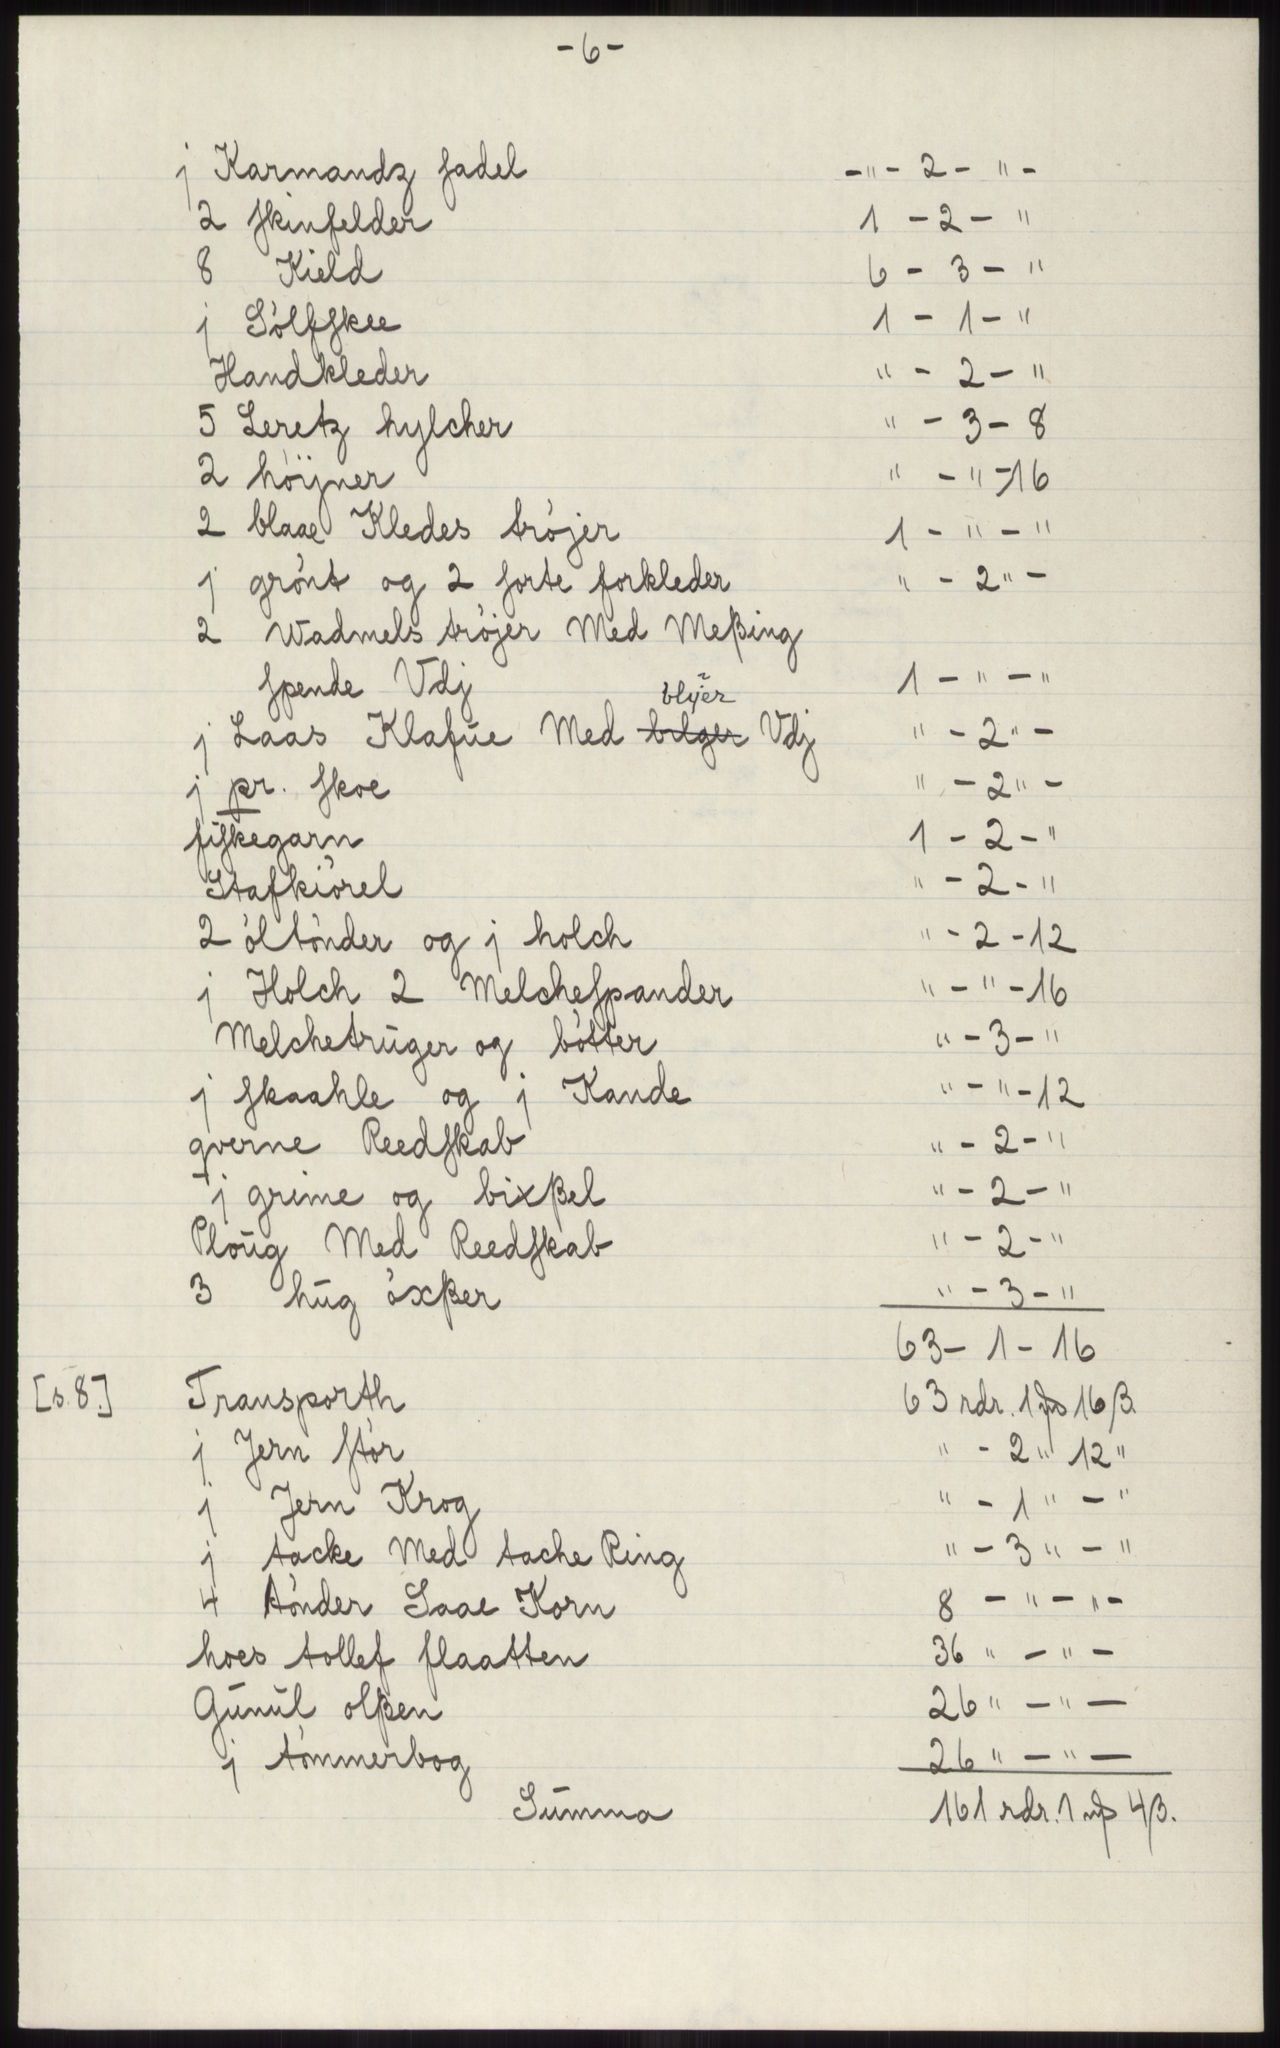 -6-
j Karmandz sadel -"- 2 - " -
2 skinfelder 1 - 2 - "
8 Kield 6 - 3 - "
j Sölfskee 1 - 1 - "
Handkleder " - 2 - "
5 Leretz hylcher " - 3 - 8
2 höijner " - " - 16
2 blaae Kledes tröjer 1 - " - "
j grönt og 2 sorte forkleder " - 2 " -
2 Wadmels tröjer Med Meßing
spende Vdj 1 - " - "
blÿer
j Laas Klafŭe Med belger Vdj " - 2 " -
j pr. skoe " - 2 " -
fiskegarn 1 - 2 - "
Stafkiörel " - 2 - "
2 öltönder og j holch " - 2 - 12
j Holch 2 Melchespander " - " - 16
Melchetrŭger og bötter " - 3 - "
j skaahle og j Kande " - " - 12
qverne Reedskab " - 2 - "
j grime og bixßel " - 2 - "
Ploŭg Med Reedskab " - 2 - "
3 hŭg öxßer " - 3 - "
63 - 1 - 16
[s. 8.] Transporth 63 rdr. 1 𝓂𝓅 16 β.
j Jern stör " - 2 " 12 "
j Jern Krog " - 1 " - "
j tacke Med tache Ring " - 3 " - "
4 tönder Saae Korn 8 - " - " -
hoes tollef flaatten 36 " - " -
Gŭnŭl olßen 26 " - " -
j tömmerbog 26 " - " -
Sŭmma 161 rdr. 1 𝓂𝓅 4 β.